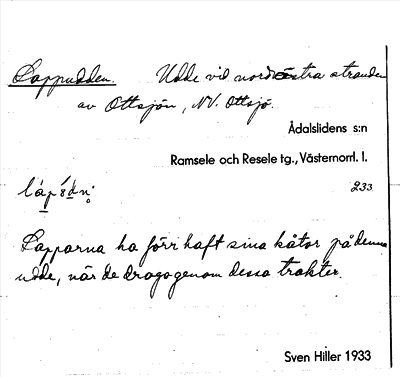 Lappudden. Udde vid nordöstra stranden
av Ottsjön, NV. Ottsjö.
Ådalslidens s:n
Ramsele och Resele tg., Västernorrl. l.
233
Lapparna ha förr haft sina kåtor på denna
udde, när de drogo genom dessa trakter.
Sven Hiller 1933